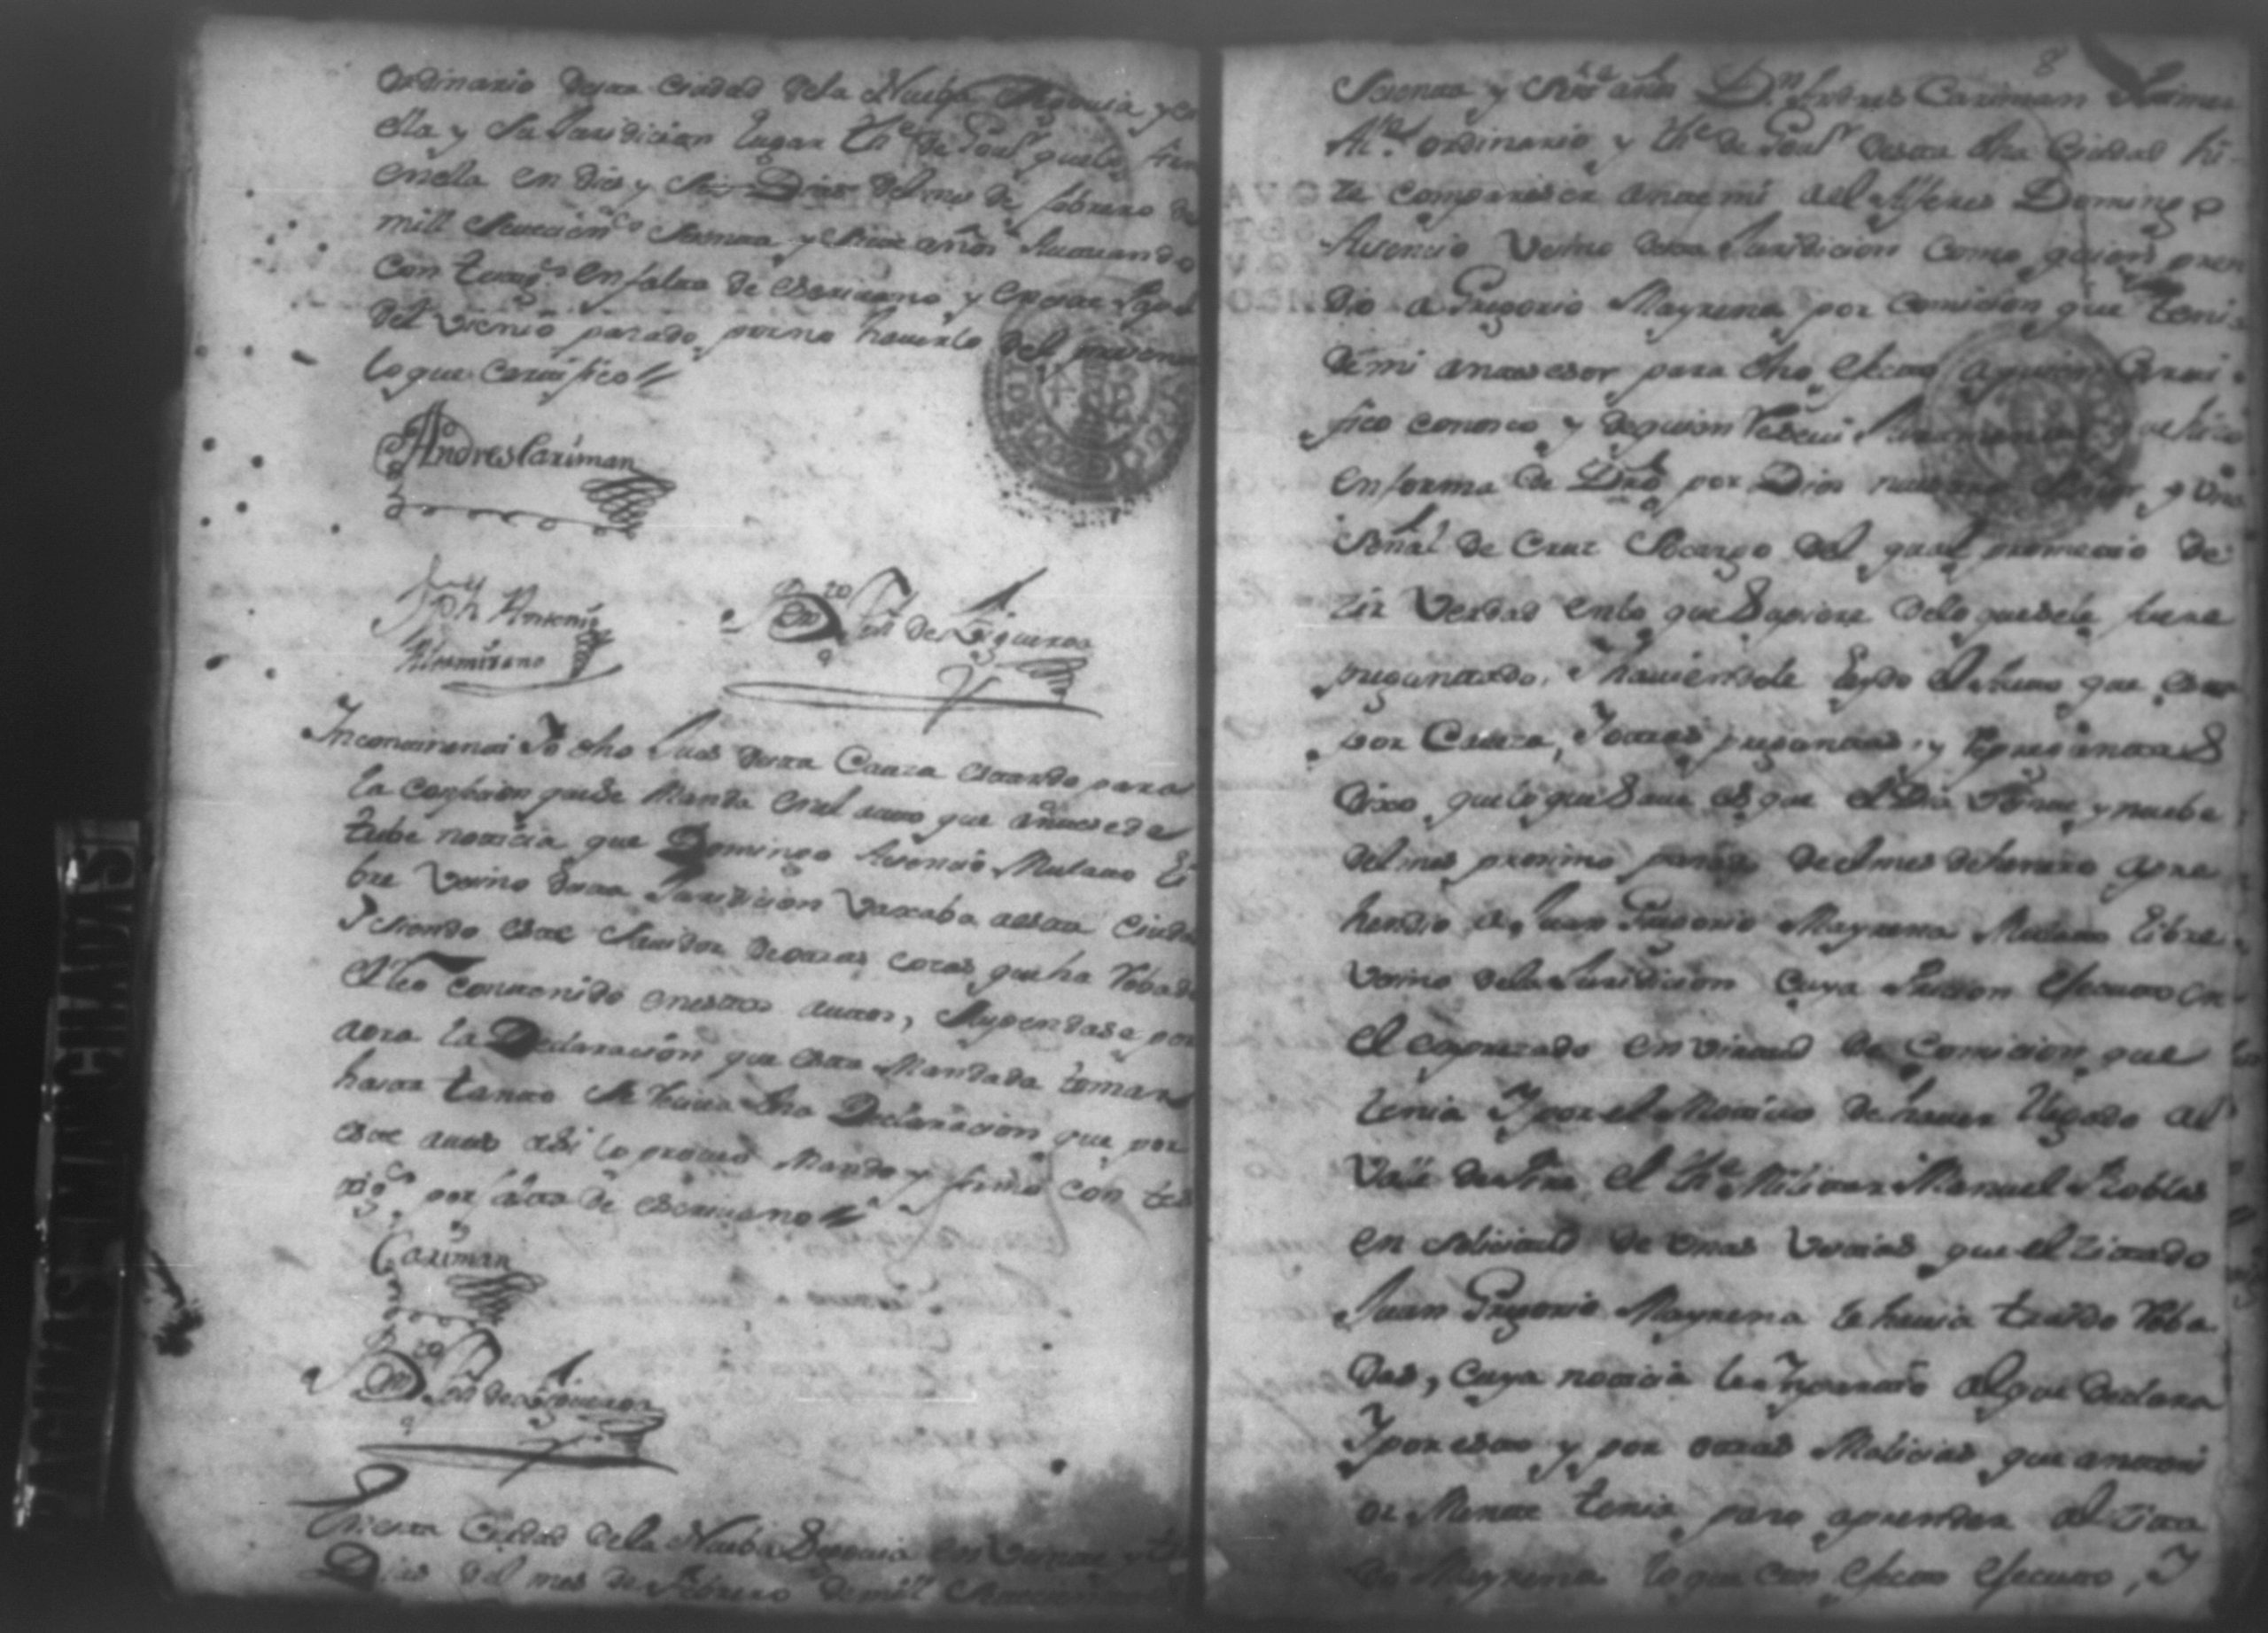 ordinario desta Ciudad dela Nueba Segovia y en
ella y su Juridicion lugar Th.e de Gral que lo firme
en ella en dies y seis Dias del mes de febrero de
mill setecien.os sesenta y siete años Actuando
con testig.s en falta de escrivano y en este Papel
del vienio pasado por no haverlo del presente
lo que Certifico //
Andres Cariman
Jph Antonio
Altamirano
de Figueroa
Incontinenti Yo dho Jues desta Causa estando para
la confecion que se Manda en el auto que antesede
tube noticia que Domingo Asencio Mulato li
bre Vecino desta Juridicion Vaxaba a esta Ciudad
Y siendo este savidor de otras cosas que ha Robado
el Reo contenido en estos autos, Suspendase por
aora la Declaracion que esta Mandada tomar
hasta tanto se Resiva dha Declaracion que por
este auto asi lo proveo Mando y firmo con tes
tig.s por falta de escrivano //
Cariman
de Figueroa
En esta Ciudad dela Nueba Segovia en veinte y
Dias del mes de Febrero de mill Setecientos
8
Sesenta y siete años Dn Andres Cariman Primer
Al.e ordinario y Th.e de Gral desta dha Ciudad hi
ze compareser ante mi al Alferes Domingo
Asencio Vecino desta Juridicion Como quien pren
dio a Gregorio Mayrena por comicion que tenia
de mi antesesor para dho efecto a quien Certi
fico conosco y de quien Resevi Juramento que hizo
en forma de Dro por Dios nuestro Señor y una
señal de Cruz So cargo del qual prometio de
zir Verdad en lo que Supiere de lo que se le fuere
preguntado, Y haviendole leydo el Auto que esta
por Caveza, Y otras preguntas, y Repreguntas
Dixo que lo que Save es que el Dia veinte y nuebe
del mes proximo pasado de el mes de henero apre
hendio a Juan Gregorio Mayrena Mulato libre
Vecino dela Juridicion Cuya Pricion efecuto en
el expresado en virtud de Comicion que
tenia Y por el Motivo de haver llegado al
Valle de el Th.e Militar Manuel Robles
en solicitud de unas Vestias que el Zitado
Juan Gregorio Mayrena le havia traido Roba
das, Cuya noticia le Ynsertó al que Declara
Y por esto y por otras Malicias que anterri
or Mente tenia para aprender al Zita
do Mayrena lo que con efecto efecuto, Y